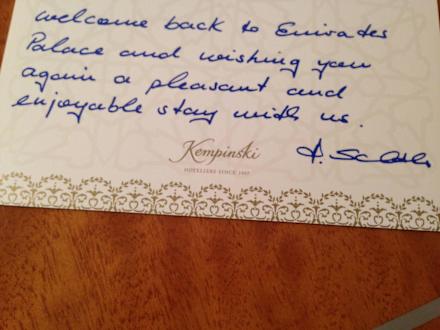 welcome back to Emirates
Palace and wishing you
again a pleasant and
enjoyable stay with us.
Kempinski
HOTELIERS SINCE 1897